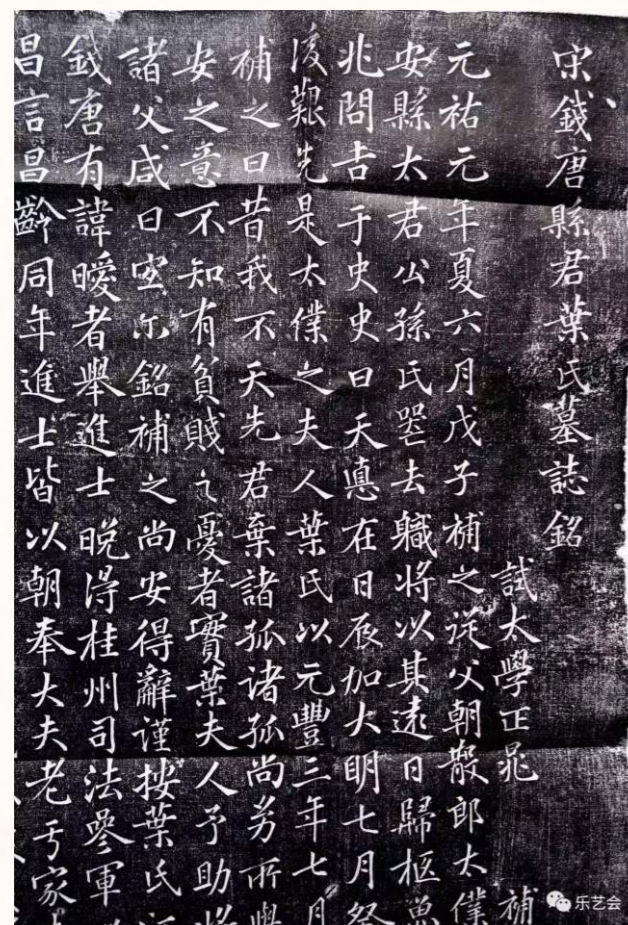 宋錢唐縣君葉氏墓誌銘
試太學正晁補
元祐元年夏六月戊子補之從父朝散郎太僕
安縣太君公孫氏喪去職將以其遠日歸柩魚
兆問吉于史史曰天惠在日辰加大明七月祭
後艱先是太僕之夫人葉氏以元豐三年七月
補之曰昔我不天先君棄諸孤諸孤尚幼所與
安之意不知有貧賤之憂者實葉夫人予助將
諸父咸曰宜尔銘補之尚安得辭謹按葉氏
錢唐有諱曖者舉進士晚得桂州司法參軍
昌言昌齡同年進士皆以朝奉大夫老于家
乐艺会